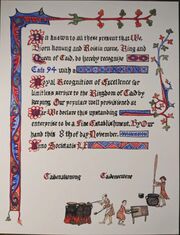 Be it known to all these present that We,
Born hawung and Roisin corne, King and
Queen of Caid, do hereby recognize
Cafe 94 with a
Royal Recognition of Excellence for
limitless service to the Kingdom of Caid by
keeping Our populace well provisioned at
War We declare this upstanding
enterprise to be a Fine Establishment. By Our
hand this 8th day November,
Anno Societatis LX